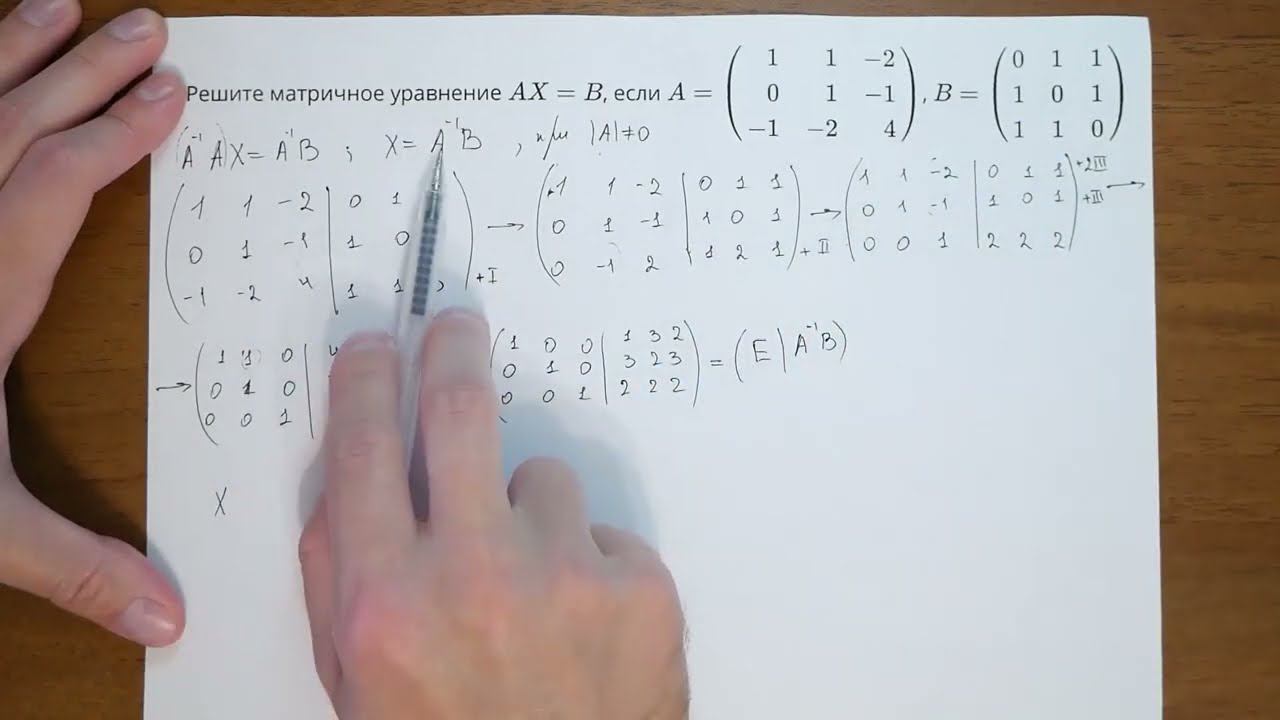 Решите матричное уравнение AX = B, если A = ( 1 1 −2 ; 0 1 −1 ; −1 −2 4 ), B = ( 0 1 1 ; 1 0 1 ; 1 1 0 )
(A⁻¹ A)X = A⁻¹B ; X = A⁻¹B , при |A|≠0
( 1 1 -2 | 0 1 ; 0 1 -1 | 1 0 ; -1 -2 4 | 1 1 ) +I → ( 1 1 -2 | 0 1 1 ; 0 1 -1 | 1 0 1 ; 0 -1 2 | 1 2 1 ) + II → ( 1 1 -2 | 0 1 1 ; 0 1 -1 | 1 0 1 ; 0 0 1 | 2 2 2 ) +2III +III →
→ ( 1 1 0 | 4 ; 0 1 0 | ; 0 0 1 | ( 1 0 0 | 1 3 2 ; 0 1 0 | 3 2 3 ; 0 0 1 | 2 2 2 ) = (E | A⁻¹B)
X